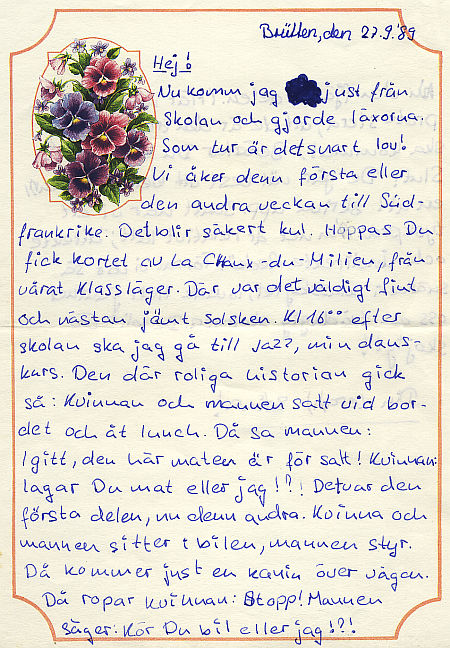 Brütten, den 27.9.89
Hej!
Nu komm jag just från
Skolan och gjorde läxorna.
Som tur är det snart lov!
Vi åker denn första eller
den andra veckan till Süd-
frankrike. Det blir säkert kul. Hoppas Du
fick kortet av La Chaux-du-Milieu, från
vårat Klassläger. Där var det väldigt fint
och nästan jämt solsken. Kl 16⁰⁰ efter
skolan ska jag gå till Jazz, min dans-
kurs. Den där roliga historian gick
så: Kvinnan och mannen satt vid bor-
det och åt lunch. Då sa mannen:
Igitt, den här maten är för salt! Kvinnan:
lagar Du mat eller jag!?! Det var den
första delen, nu denn andra. Kvinna och
mannen sitter i bilen, mannen styr.
Då kommer just en kanin över vägen.
Då ropar kvinnan: Stopp! Mannen
säger: Kör Du bil eller jag!?!